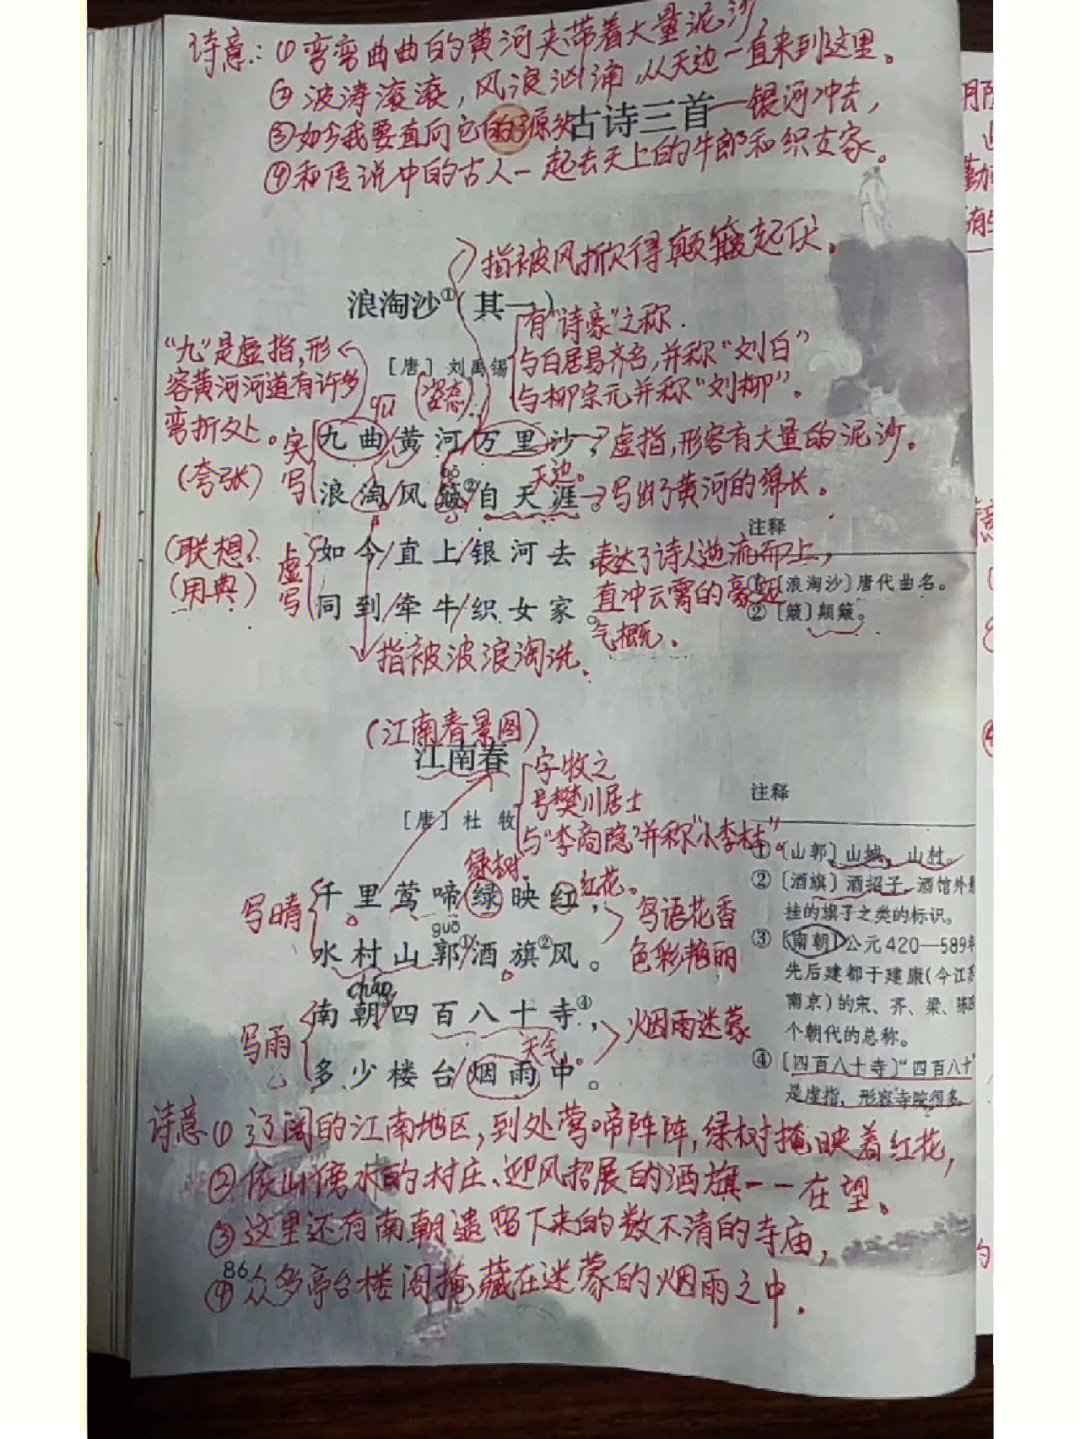 诗意:①弯弯曲曲的黄河夹带着大量泥沙,
②波涛滚滚,风浪汹涌,从天边一直来到这里。
③如今我要直向它的源头——银河冲去,
古诗三首
④和传说中的古人一起去天上的牛郎和织女家。
指被风掀得颠簸起伏。
浪淘沙①(其一)
[唐] 刘禹锡
有“诗豪”之称.
与白居易齐名,并称“刘白”
与柳宗元并称“刘柳”.
“九”是虚指,形
容黄河河道有许多
弯折处。
qū
(姿态)
实写
(夸张)
九曲/黄河/万里沙,
虚指,形容有大量的泥沙。
bǒ
天边。
浪淘/风簸②自天涯。
写出了黄河的绵长。
(联想)
(用典)
虚写
如今/直上/银河去,
同到/牵牛/织女家。
表达了诗人逆流而上,
直冲云霄的豪迈
气概。
指被波浪淘洗.
注释
①〔浪淘沙〕唐代曲名。
②〔簸〕颠簸。
(江南春景图)
江南春
[唐] 杜牧
字牧之
号樊川居士
与“李商隐”并称“小李杜”。
绿树.
红花。
写晴
千里莺啼绿映红,
guō
水村山郭①/酒旗②风。
写语花香
色彩艳丽
cháo
写雨
南朝③四百八十寺④,
天气。
多少楼台/烟雨中。
烟雨迷蒙
注释
①〔山郭〕山城,山村。
②〔酒旗〕酒招子,酒馆外悬
挂的旗子之类的标识。
③〔南朝〕公元420—589年
先后建都于建康(今江苏
南京)的宋、齐、梁、陈四
个朝代的总称。
④〔四百八十寺〕“四百八十”
是虚指,形容寺院很多。
诗意①辽阔的江南地区,到处莺啼阵阵,绿树掩映着红花,
②依山傍水的村庄、迎风招展的酒旗一一在望。
③这里还有南朝遗留下来的数不清的寺庙,
④众多亭台楼阁掩藏在迷蒙的烟雨之中.
86